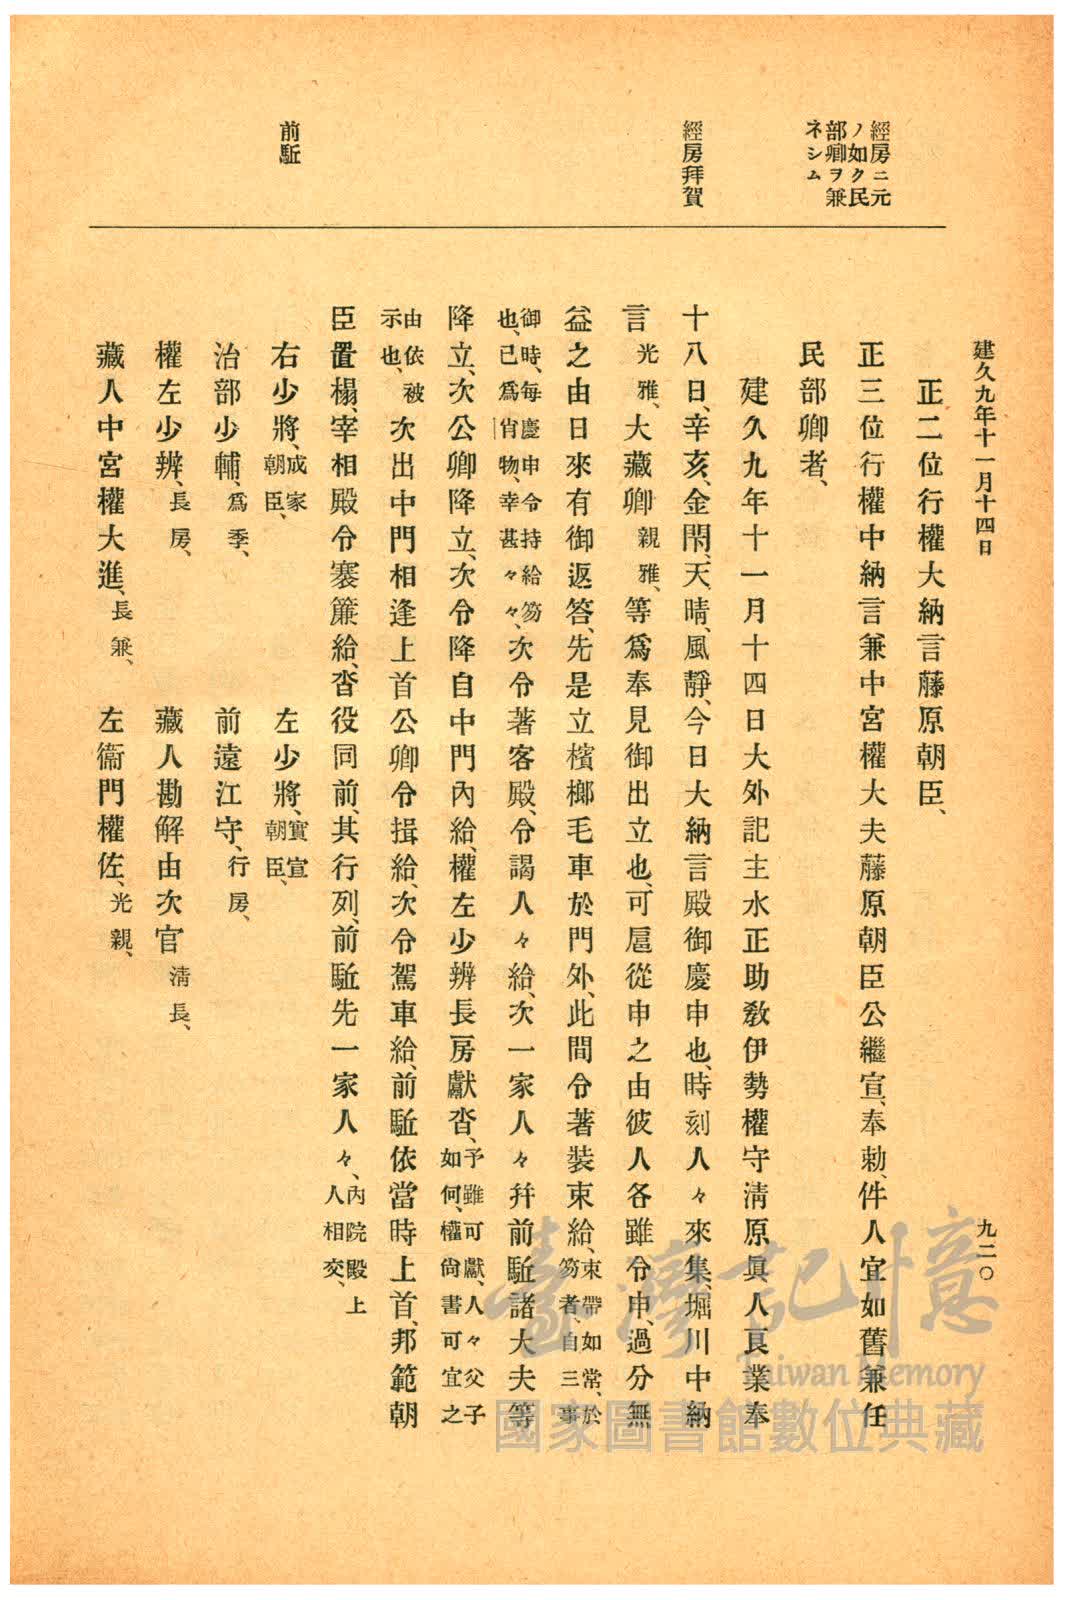 建久九年十一月十四日
九二〇
經房ニ元
ノ如ク民
部卿ヲ兼
ネシム
經房拜賀
前駈
正二位行權大納言藤原朝臣、
正三位行權中納言兼中宮權大夫藤原朝臣公繼宣、奉勅、件人宜如舊兼任
民部卿者、
建久九年十一月十四日大外記主水正助敎伊勢權守淸原眞人良業奉
十八日、辛亥、金閇、天晴、風靜、今日大納言殿御慶申也、時刻人々來集、堀川中納
言光雅、大藏卿親雅、等爲奉見御出立也、可扈從申之由彼人各雖令申、過分無
益之由日來有御返答、先是立檳榔毛車於門外、此間令著裝束給、束帶如常、於
笏者、自三事
御時、每慶申令持給笏
也、已爲肖物、幸甚々々、次令著客殿、令謁人々給、次一家人々幷前駈諸大夫等
降立、次公卿降立、次令降自中門內給、權左少辨長房獻沓、予雖可獻、人々父子
如何、權尙書可宜之
由依被
示也、次出中門相逢上首公卿令揖給、次令駕車給、前駈依當時上首、邦範朝
臣置榻、宰相殿令褰簾給、沓役同前、其行列、前駈先一家人々、內院殿上
人相交、
右少將、成家
朝臣、
左少將、實宣
朝臣、
治部少輔、爲季、
前遠江守、行房、
權左少辨、長房、
藏人勘解由次官淸長、
藏人中宮權大進、長兼、
左衞門權佐、光親、
臺灣記憶
Taiwan Memory
國家圖書館數位典藏